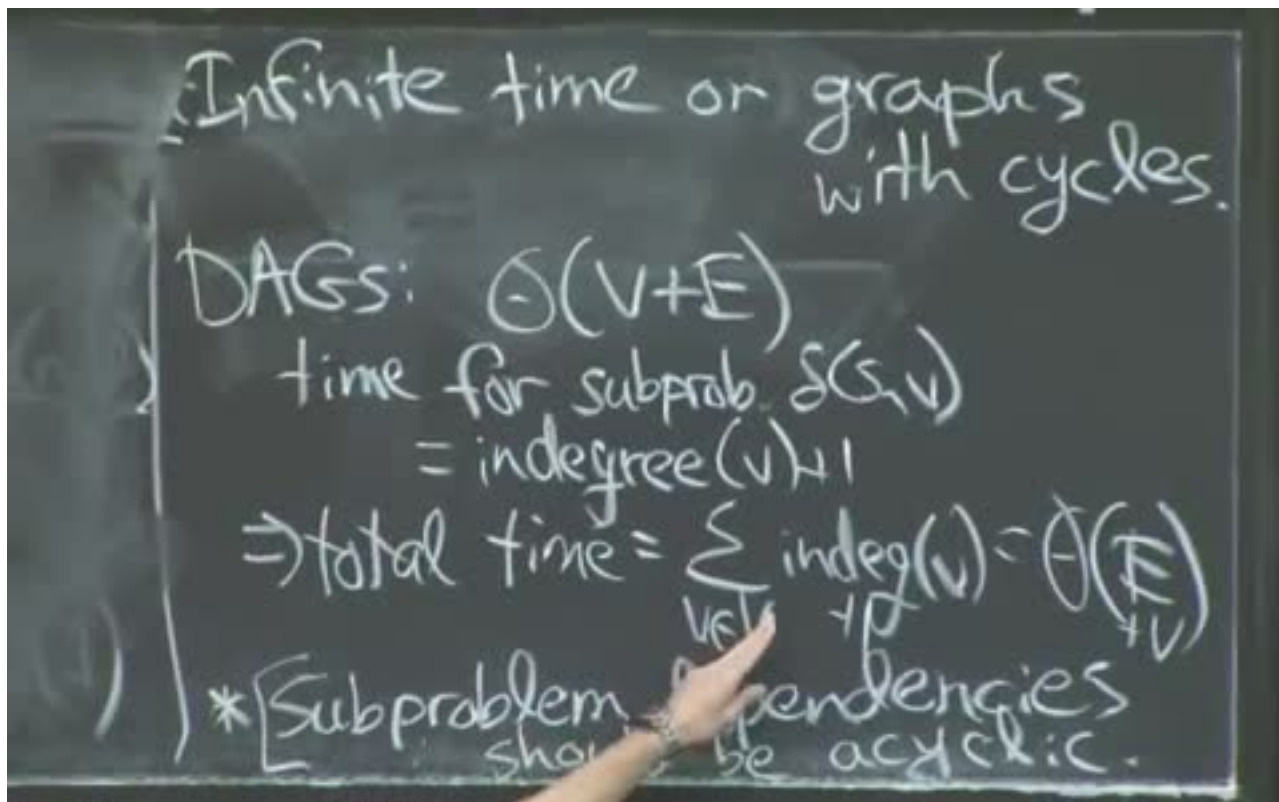 Infinite time on graphs
with cycles.
DAGs: Θ(V+E)
time for subprob. δ(s,v)
= indegree(v)+1
⇒ total time = Σ indeg(v) = Θ(E
v∈V +1 +V)
*[Subproblem dependencies
should be acyclic.